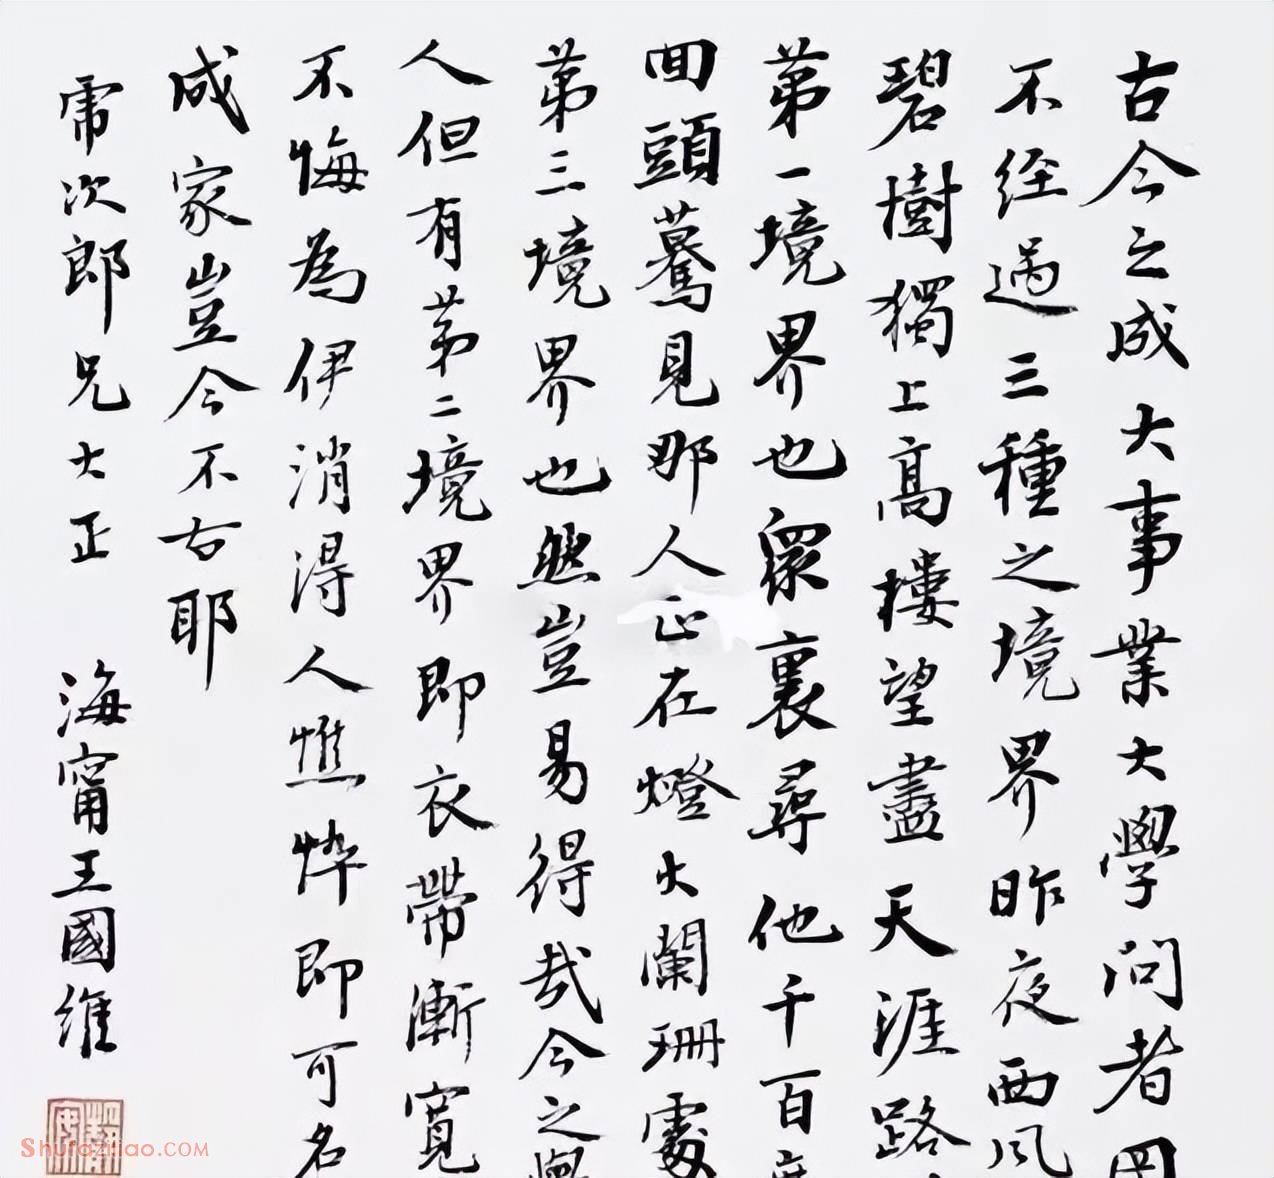 古今之成大事業大學問者罔
不经過三種之境界昨夜西风
碧樹獨上高樓望盡天涯路
第一境界也衆裏尋他千百度
回頭驀見那人正在燈火闌珊處
第三境界也然豈易得哉今之學
人但有第二境界即衣帶漸寬
不悔為伊消得人憔悴即可名
成家豈今不右耶
虎次郎兄大正 海甯王國維
Shufaziliao.COM